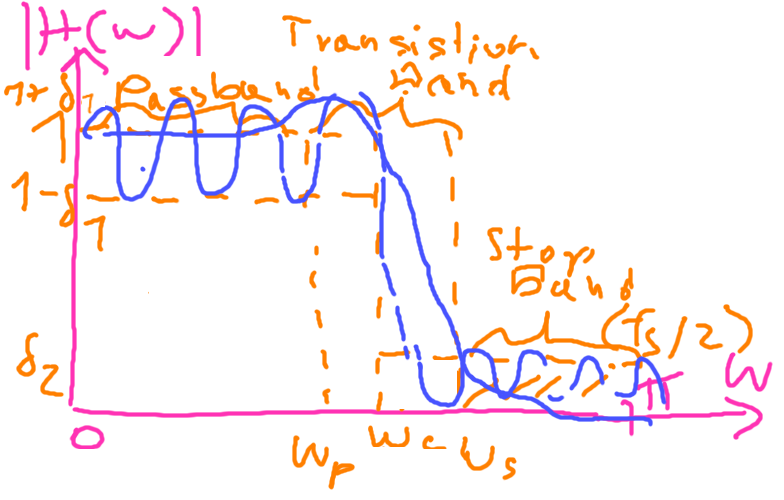 |H(w)|
Transistion
Band
1+δ1 Passband
1
1-δ1
Stop
Band
(fs/2)
δ2
W
π
0
Wp Wc Ws